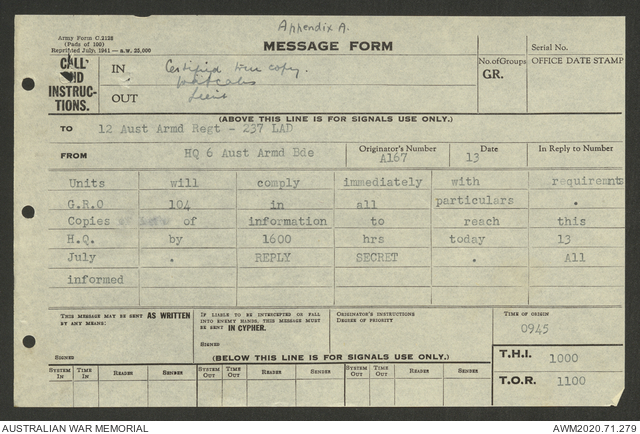 Appendix A.
Army Form C.2128
(Pads of 100)
Reprinted July, 1941 — n.w. 25,000
MESSAGE FORM
Serial No.
CALL AND INSTRUCTIONS.
IN Certified true copy.
OUT Lieut
No. of Groups
GR.
OFFICE DATE STAMP
(ABOVE THIS LINE IS FOR SIGNALS USE ONLY.)
TO 12 Aust Armd Regt - 237 LAD
FROM HQ 6 Aust Armd Bde
Originator's Number A167
Date 13
In Reply to Number
Units will comply immediately with requiremnts
G.R.O 104 in all particulars .
Copies of information to reach this
H.Q. by 1600 hrs today 13
July . REPLY SECRET . All
informed
THIS MESSAGE MAY BE SENT AS WRITTEN BY ANY MEANS:
SIGNED
IF LIABLE TO BE INTERCEPTED OR FALL INTO ENEMY HANDS, THIS MESSAGE MUST BE SENT IN CYPHER.
SIGNED
ORIGINATOR'S INSTRUCTIONS
DEGREE OF PRIORITY
TIME OF ORIGIN
0945
(BELOW THIS LINE IS FOR SIGNALS USE ONLY.)
T.H.I. 1000
SYSTEM IN TIME IN READER SENDER SYSTEM OUT TIME OUT READER SENDER SYSTEM OUT TIME OUT READER SENDER
T.O.R. 1100
AUSTRALIAN WAR MEMORIAL
AWM2020.71.279